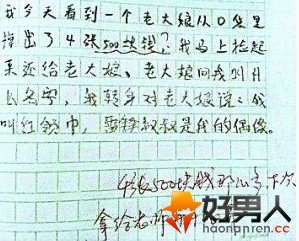 我今天看到一个老大娘从口袋里
掉出了4张500块钱？我马上捡起
来还给老大娘、老大娘问我叫什
么名字，我转身对老大娘说：我
叫红领巾，雷锋叔叔是我的偶像。
4张500块钱那么多下次
拿给老师
好男人
haonanren.cc